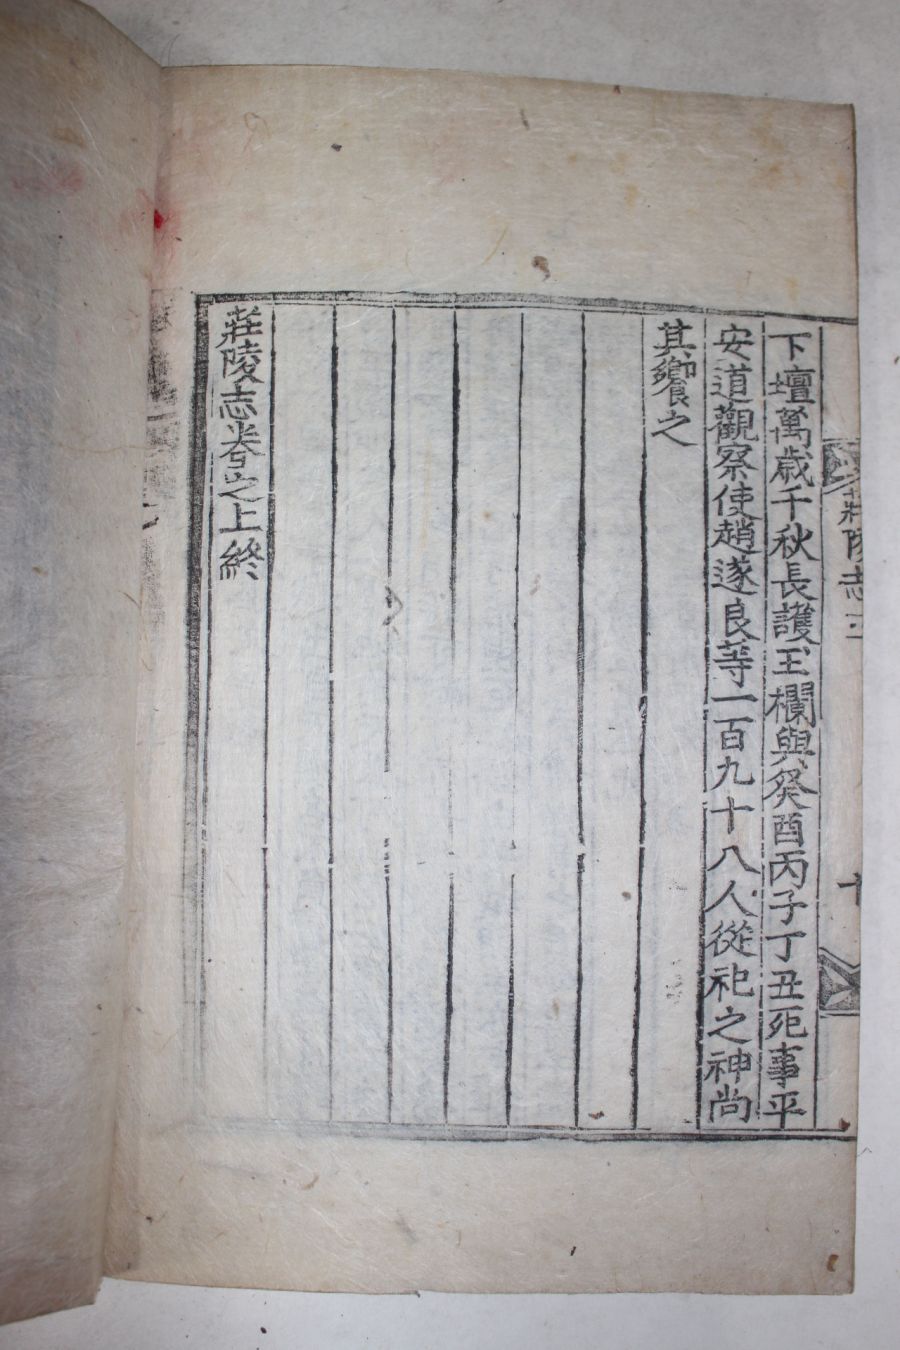 莊陵志上
十
下壇萬歲千秋長護玉欄與癸酉丙子丁丑死事平
安道觀察使趙遂良等一百九十八人從祀之神尚
其饗之
莊陵志卷之上終